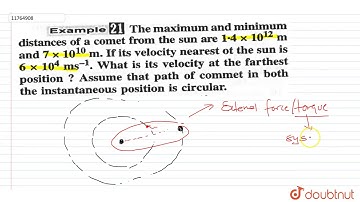 11764908
Example 21 The maximum and minimum
distances of a comet from the sun are 1·4 × 10¹² m
and 7 × 10¹⁰ m. If its velocity nearest ot the sun is
6 × 10⁴ ms⁻¹. What is its velocity at the farthest
position ? Assume that path of commet in both
the instantaneous position is circular.
External force/torque
sys.
doubtnut